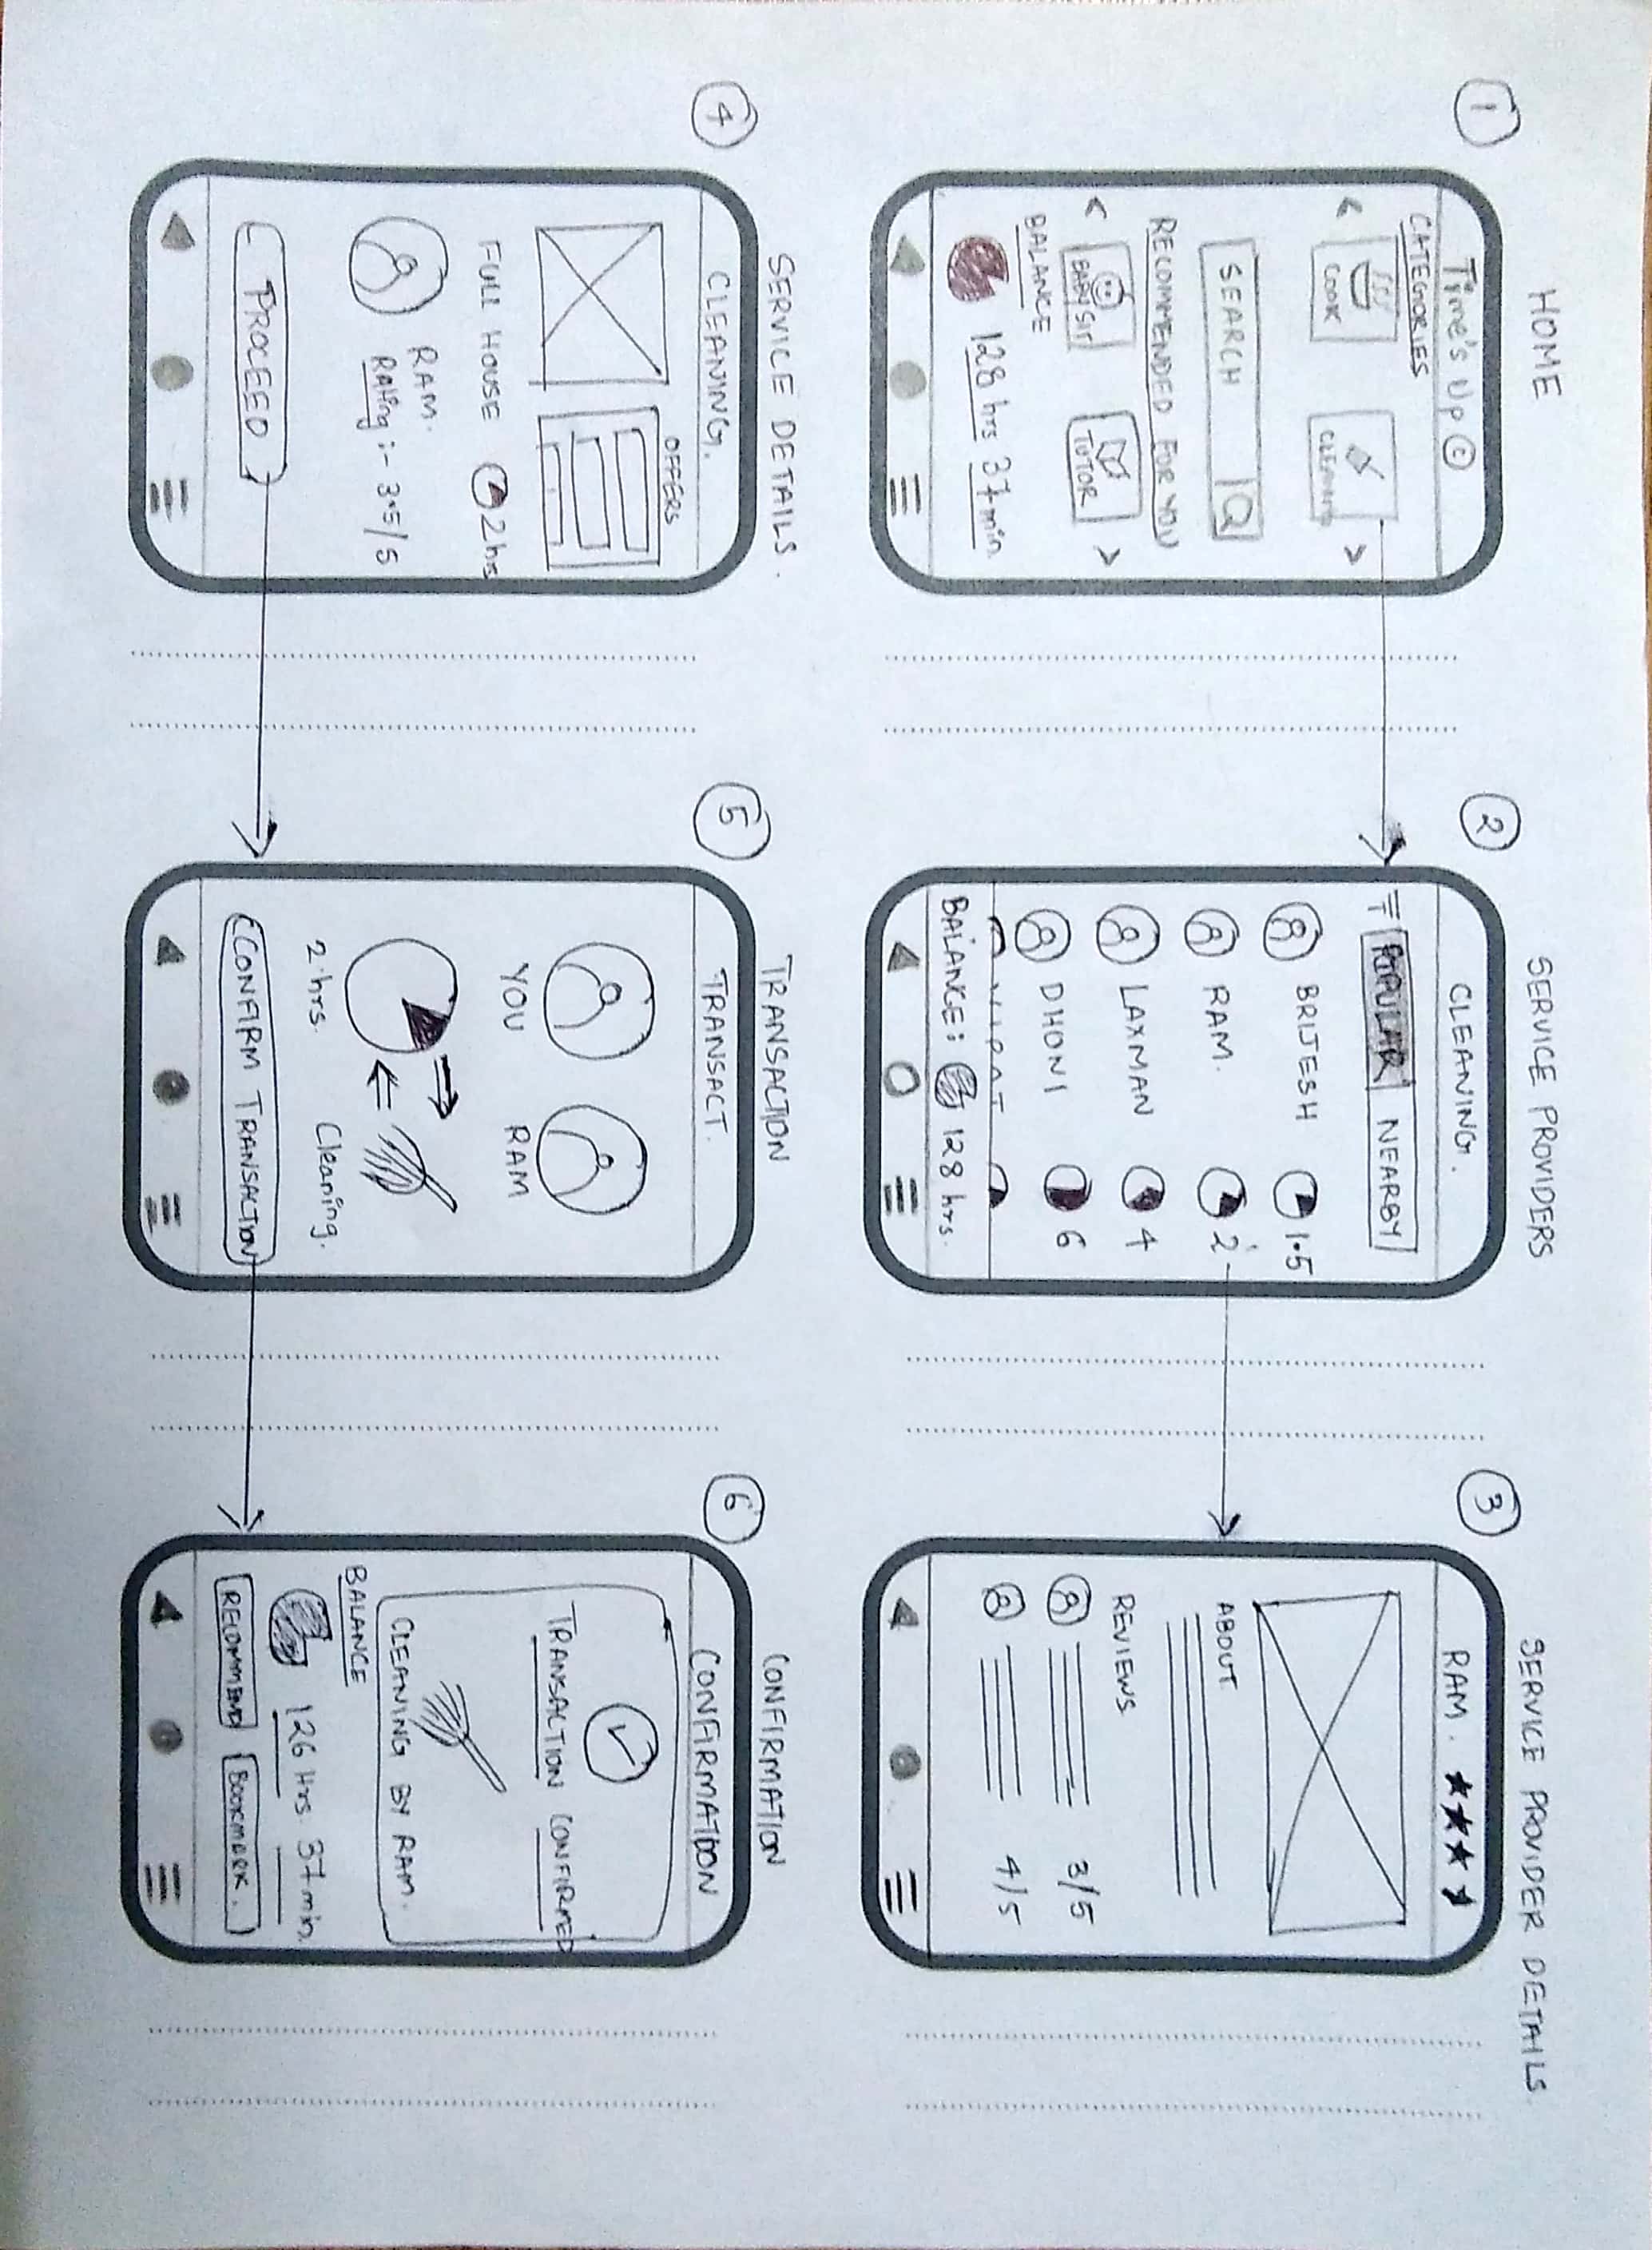 HOME
1
Time's Up ©
CATEGORIES
< COOK CLEANING >
SEARCH
RECOMMENDED FOR YOU
< BABY SIT TUTOR >
BALANCE
128 hrs 37 min.
SERVICE PROVIDERS
2
CLEANING.
POPULAR NEARBY
BRIJESH 1.5
RAM. 2
LAXMAN 4
DHONI 6
BALANCE: 128 hrs.
SERVICE PROVIDER DETAILS.
3
RAM.
ABOUT
REVIEWS
3/5
4/5
SERVICE DETAILS.
4
CLEANING.
OFFERS
FULL HOUSE 2 hrs
RAM.
Rating :- 3.5/5
PROCEED
TRANSACTION
5
TRANSACT.
YOU RAM
2 hrs. Cleaning.
CONFIRM TRANSACTION
CONFIRMATION
6
CONFIRMATION
TRANSACTION CONFIRMED
CLEANING BY RAM.
BALANCE
126 Hrs. 37 min.
RECOMMEND BOOKMARK.